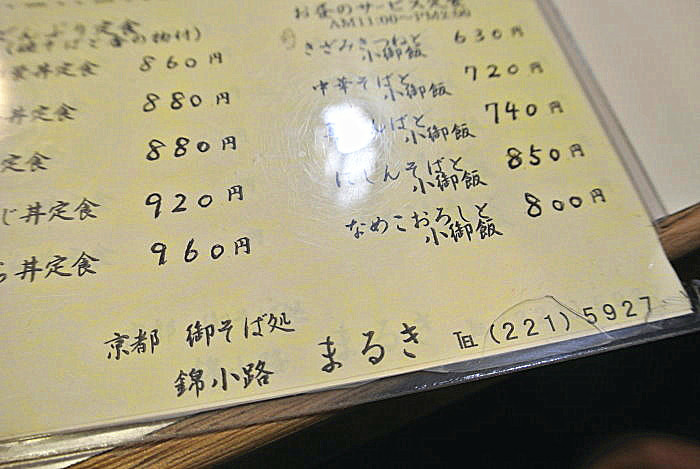 どんぶり定食
丼定食 860円
丼定食 880円
定食 880円
じ丼定食 920円
丼定食 960円
お昼のサービス定食
AM11:00〜PM2:00
きざみきつねと
小御飯 630円
中華そばと
小御飯 720円
そばと
小御飯 740円
にしんそばと
小御飯 850円
なめこおろしと
小御飯 800円
京都 御そば処
錦小路 まるき TEL (221) 5927